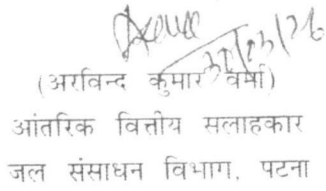 30/03/26
(अरविन्द कुमार वर्मा)
आंतरिक वित्तीय सलाहकार
जल संसाधन विभाग, पटना